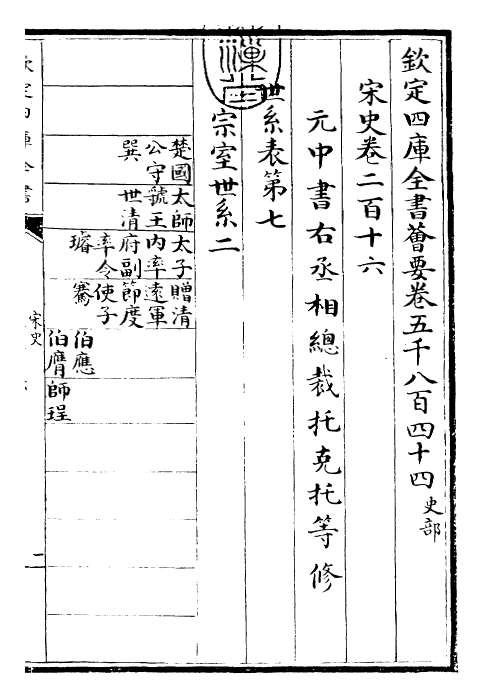 欽定四庫全書薈要卷五千八百四十四史部
宋史卷二百十六
元中書右丞相總裁托克托等修
世系表第七
宗室世系二
楚國公守巽
太師虢王世清
太子內率府副率令𤩽
贈清遠軍節度使子騫
伯應
伯膺
師珵
欽定四庫全書
宋史